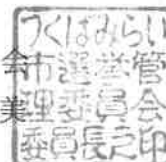 つくばみらい
市選挙管
理委員会
委員長之印
美